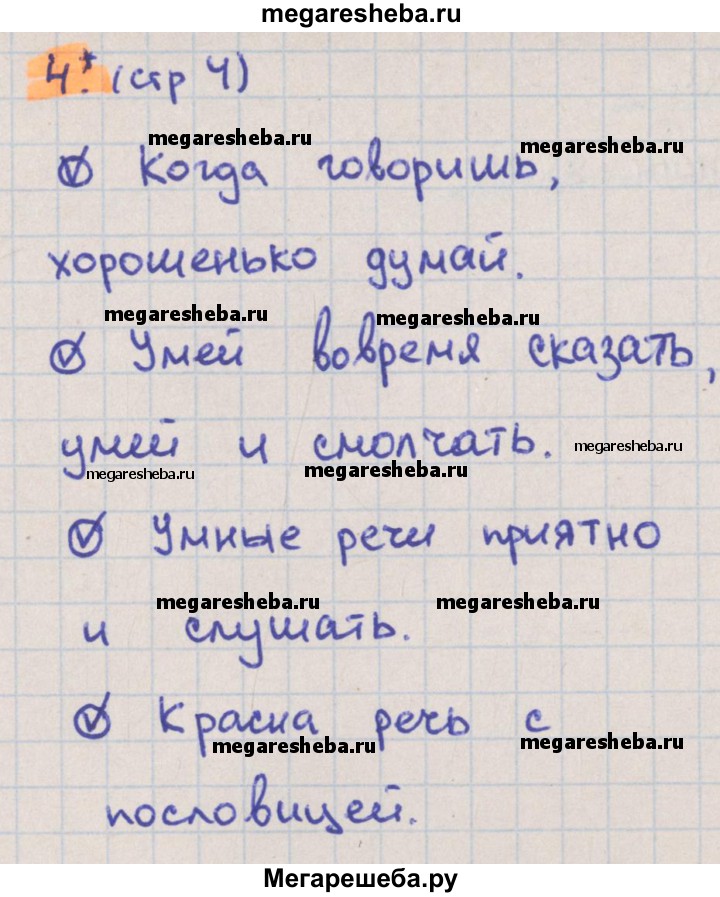 megaresheba.ru
4.* (стр 4)
megaresheba.ru
megaresheba.ru
Когда говоришь,
хорошенько думай.
megaresheba.ru
megaresheba.ru
Умей вовремя сказать,
умей и смолчать.
megaresheba.ru
megaresheba.ru
megaresheba.ru
Умные речи приятно
megaresheba.ru
megaresheba.ru
и слушать.
Красна речь с
megaresheba.ru
megaresheba.ru
пословицей.
Мегарешеба.ру